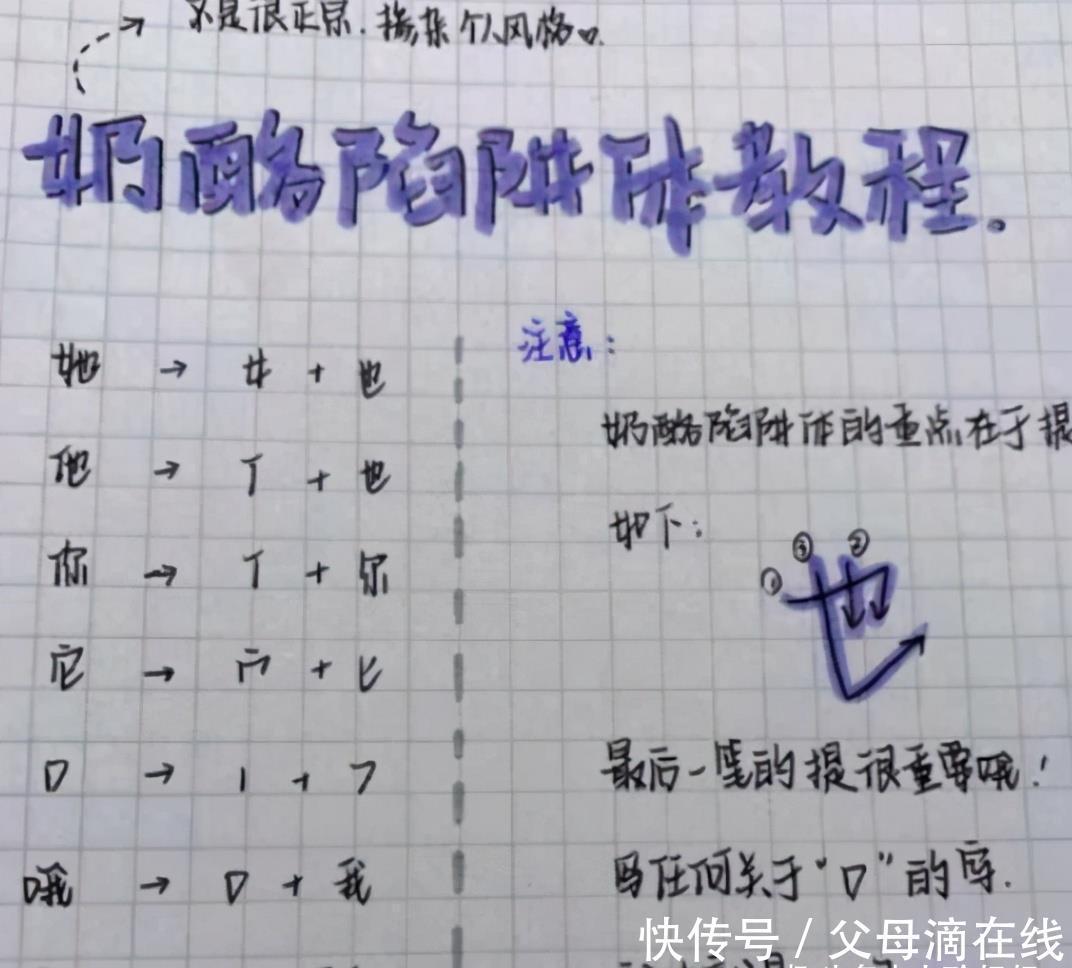 不是很正常.掺杂个人风格
奶酪陷阱体教程。
她 → 女 + 也
他 → 亻 + 也
你 → 亻 + 尔
它 → 宀 + 匕
口 → 丨 + ㇇
哦 → 口 + 我
注意：
奶酪陷阱体的重点在于提
如下：
① ③ ②
也
最后一笔的提很重要哦！
写任何关于“口”的字.
快传号 / 父母滴在线